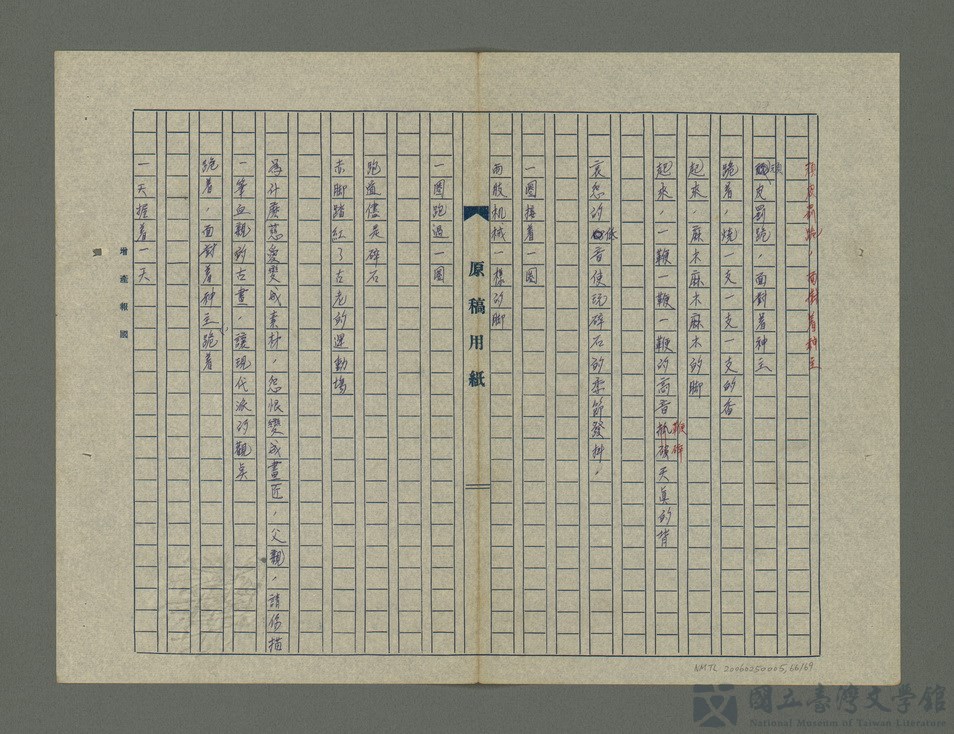 被罰跪,面對着神主
被罰跪,面對着神主
跪着,燒一支一支一支的香
起來,麻木麻木麻木的脚
起來,一鞭一鞭一鞭的高音抓破天真的背
鞭碎
哀怨的低音使玩碎石的季節發抖。
一圈接着一圈
兩肢机械一樣的脚
原稿用紙
一圈跑過一圈
跑道儘是碎石
赤脚踏紅了古老的運動場
為什麽慈愛變成素材,怨恨變成畫匠,父親,請你描
一筆血親的古畫,讓現代派的觀点
跪着,面對着神主跪着
一天握着一天
增產報國
NMTL 20060250005,66/69
國立臺灣文學館
National Museum of Taiwan Literature